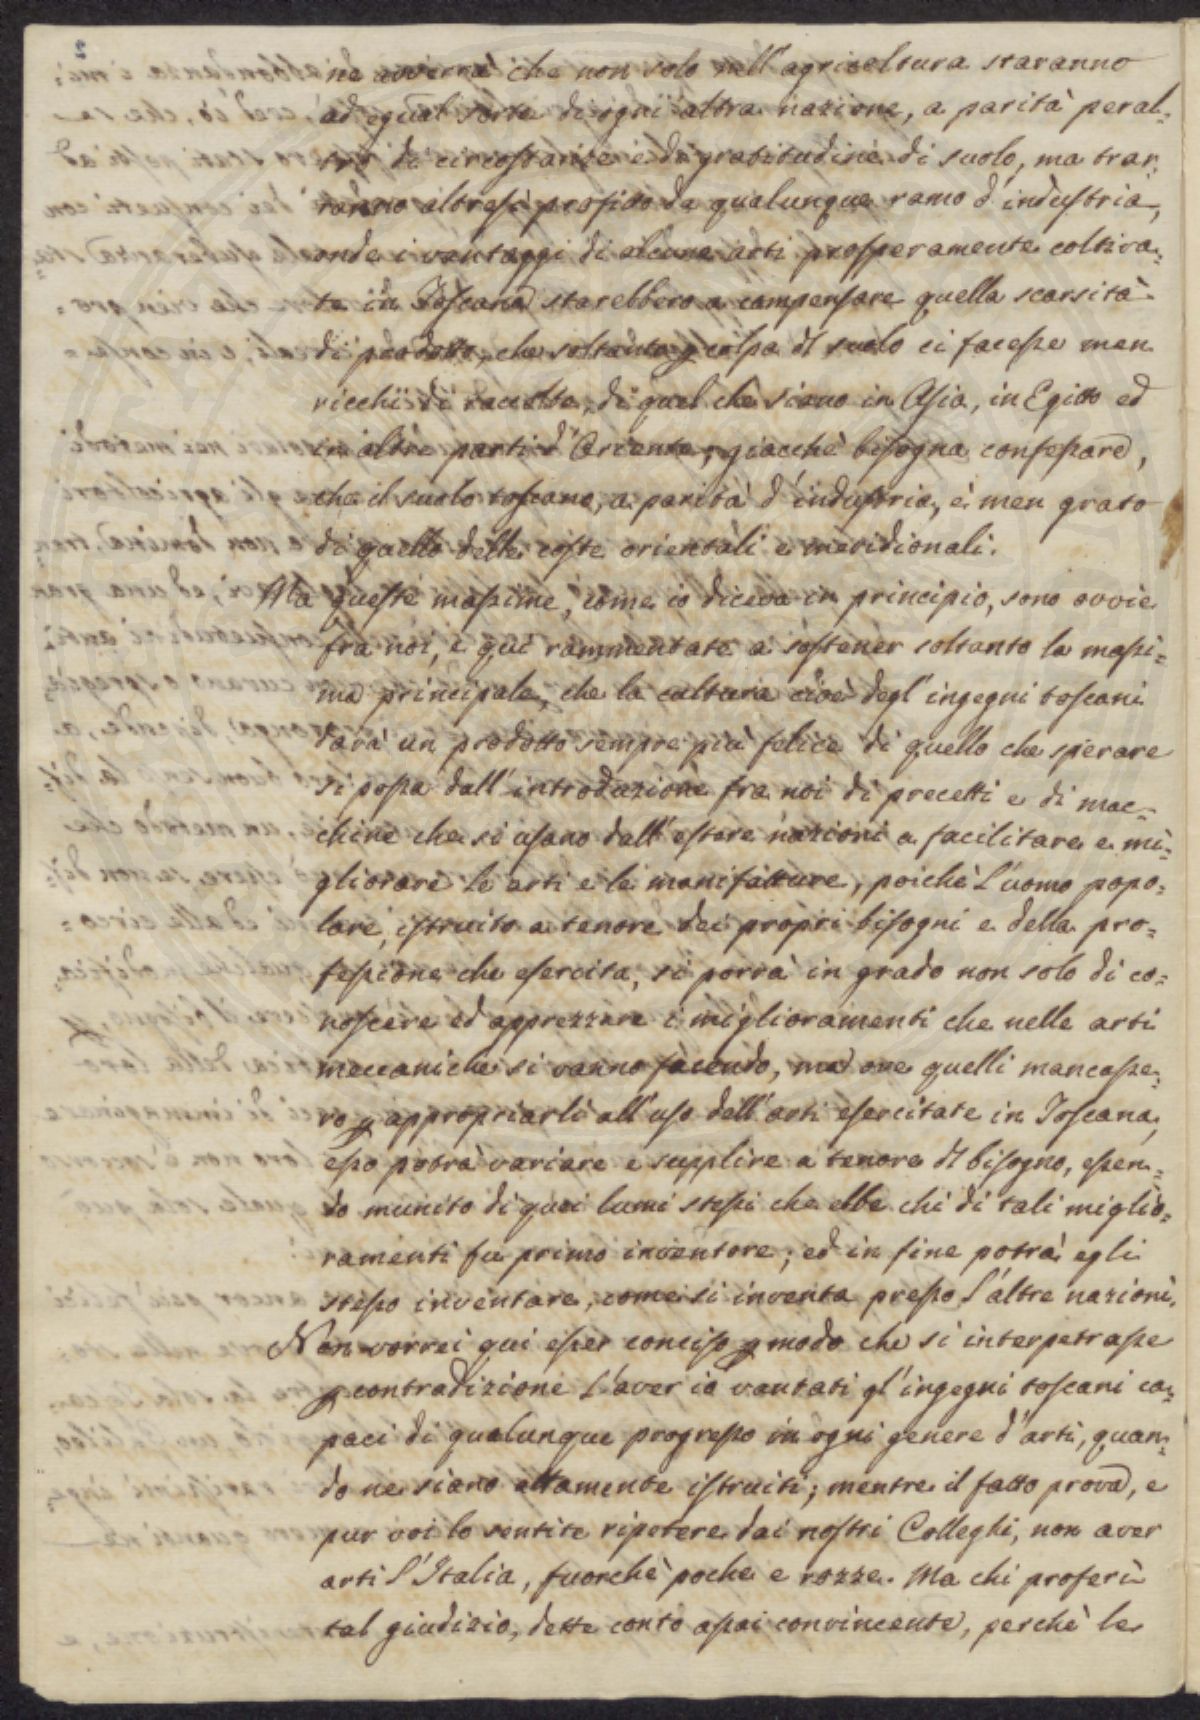 2
ne avverrà che non solo nell'agricoltura staranno
ad egual sorte di ogni altra nazione, a parità peral-
tro di circostanze e di gratitudine di suolo, ma trar-
ranno altresì profitto da qualunque ramo d'industria,
onde i vantaggi di alcune arti prosperamente coltiva-
te in Toscana starebbero a compensare quella scarsità
di prodotto, che soltanto p colpa dl suolo ci facesse men
ricchi di raccolte, di quel che siano in Asia, in Egitto ed
in altre parti d'Oriente; giacchè bisogna confessare,
che il suolo toscano, a parità d'industria, è men grato
di quello delle coste orientali e meridionali.
Ma queste massime, come io diceva in principio, sono ovvie
fra noi, e qui rammentate a sostener soltanto la massi-
ma principale, che la cultura cioè degl'ingegni toscani
darà un prodotto sempre più felice di quello che sperare
si possa dall'introduzione fra noi di precetti e di mac-
chine che si usano dall'estere nazioni a facilitare e mi-
gliorare le arti e le manifatture, poichè l'uomo popo-
lare, istruito a tenore dei propri bisogni e della pro-
fessione che esercita, si porrà in grado non solo di co-
noscere ed apprezzare i miglioramenti che nelle arti
meccaniche si vanno facendo, ma ove quelli mancasse-
ro p appropriarli all'uso dell'arti esercitate in Toscana,
esso potrà variare e supplire a tenore dl bisogno, essen-
do munito di quei lumi stessi che ebbe chi di tali miglio-
ramenti fu primo inventore; ed in fine potrà egli
stesso inventare, come si inventa presso l'altre nazioni.
Non vorrei qui esser conciso p modo che si interpetrasse
p contradizione l'aver io vantati gl'ingegni toscani ca-
paci di qualunque progresso in ogni genere d'arti, quan-
do ne siano altamente istruiti; mentre il fatto prova, e
pur voi lo sentite ripetere dai nostri Colleghi, non aver
arti l'Italia, fuorchè poche e rozze. Ma chi proferì
tal giudizio, dette conto assai convincente, perchè le